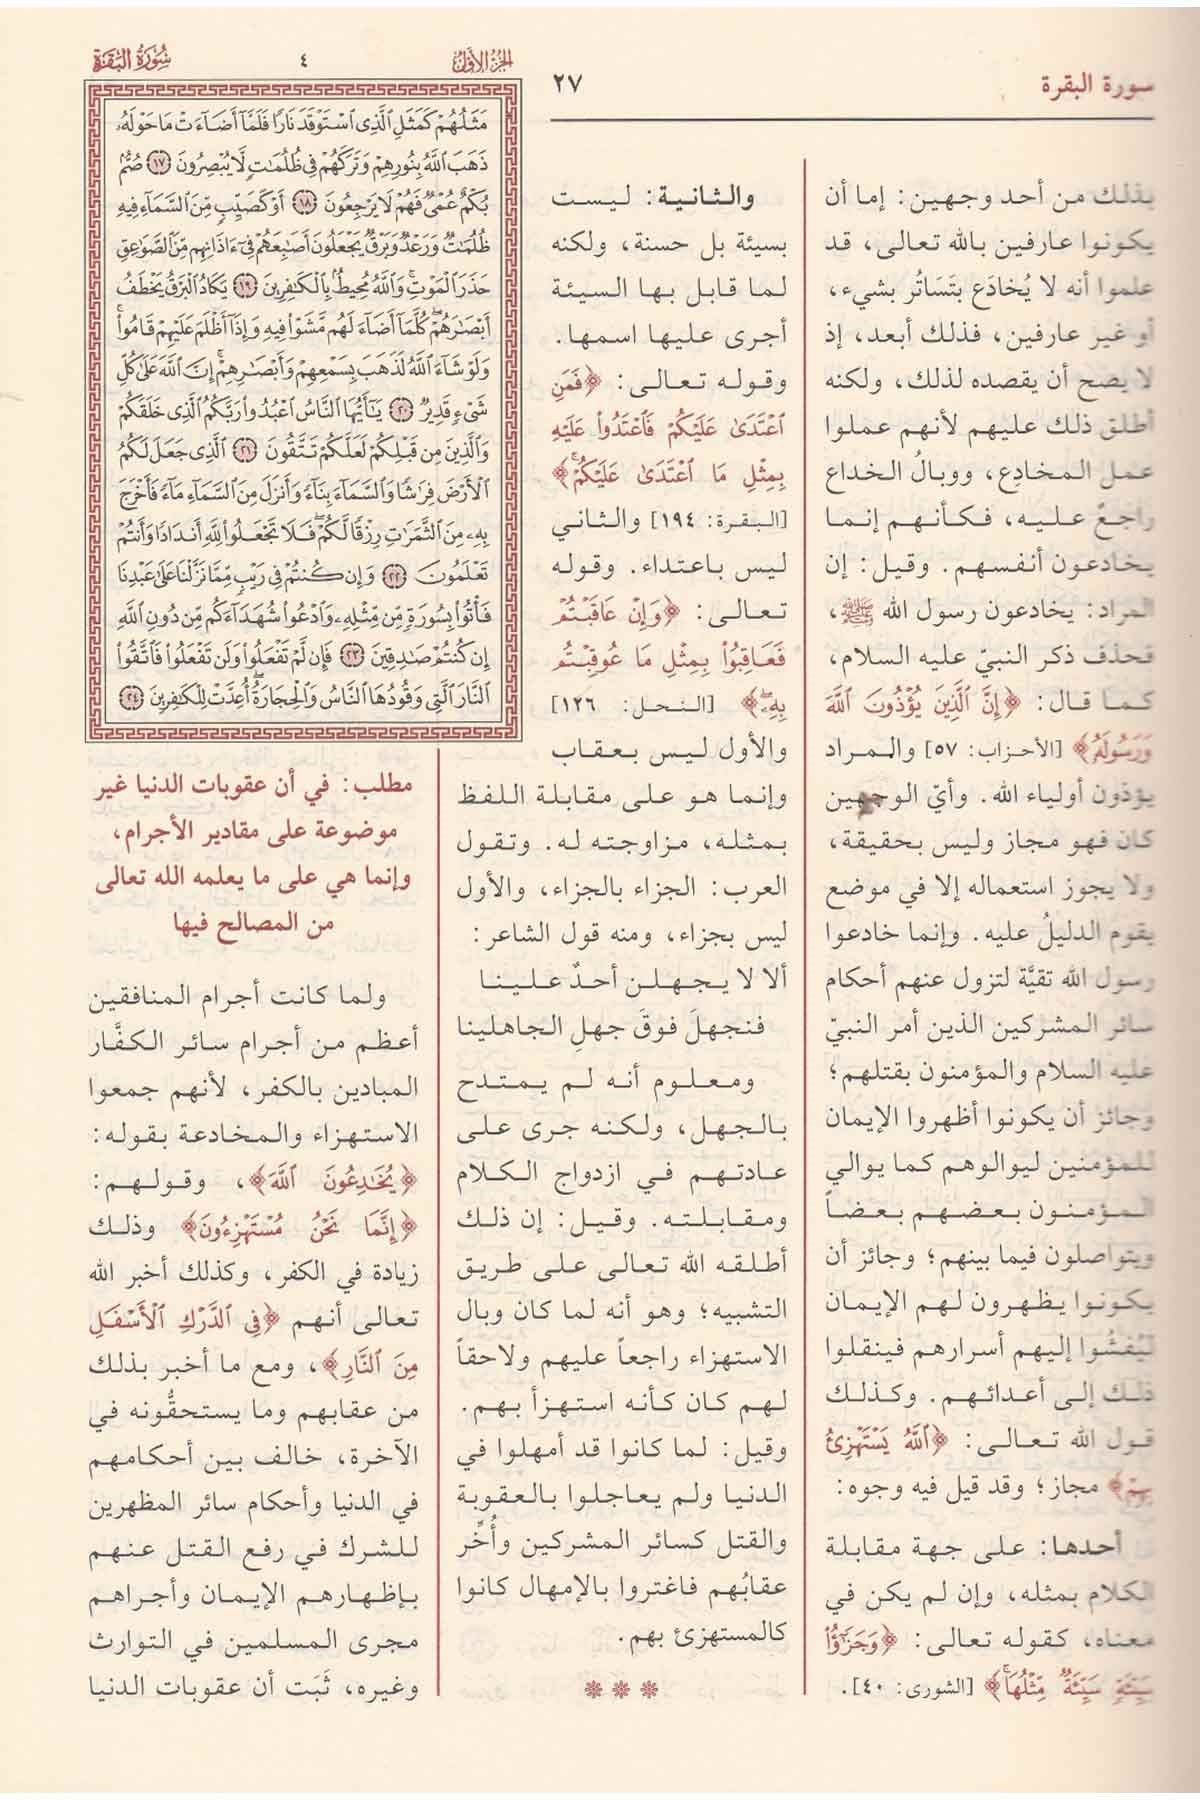 سورة البقرة
٢٧
بذلك من أحد وجهين: إما أن
يكونوا عارفين بالله تعالى، قد
علموا أنه لا يُخادَع بتَساتُر بشيء،
أو غير عارفين، فذلك أبعد، إذ
لا يصح أن يقصده لذلك، ولكنه
أطلق ذلك عليهم لأنهم عملوا
عمل المخادِع، ووبالُ الخداع
راجعٌ عليه، فكأنهم إنما
يخادعون أنفسهم. وقيل: إن
المراد: يخادعون رسول الله ﷺ،
فحذف ذكر النبيّ عليه السلام،
كما قال: ﴿إِنَّ ٱلَّذِينَ يُؤْذُونَ ٱللَّهَ
وَرَسُولَهُۥ﴾ [الأحزاب: ٥٧] والمراد
يؤذون أولياء الله. وأيّ الوجهين
كان فهو مجاز وليس بحقيقة،
ولا يجوز استعماله إلا في موضع
يقوم الدليلُ عليه. وإنما خادعوا
رسول الله تقيَّة لتزول عنهم أحكام
سائر المشركين الذين أمر النبيّ
عليه السلام والمؤمنون بقتلهم؛
وجائز أن يكونوا أظهروا الإيمان
للمؤمنين ليوالوهم كما يوالي
المؤمنون بعضهم بعضاً
ويتواصلون فيما بينهم؛ وجائز أن
يكونوا يظهرون لهم الإيمان
ليُفشُوا إليهم أسرارهم فينقلوا
ذلك إلى أعدائهم. وكذلك
قول الله تعالى: ﴿ٱللَّهُ يَسْتَهْزِئُ
بِهِمْ﴾ مجاز؛ وقد قيل فيه وجوه:
أحدها: على جهة مقابلة
الكلام بمثله، وإن لم يكن في
معناه، كقوله تعالى: ﴿وَجَزَٰٓؤُا۟
سَيِّئَةٍ سَيِّئَةٌ مِّثْلُهَا﴾ [الشورى: ٤٠].
والثانية: ليست
بسيئة بل حسنة، ولكنه
لما قابل بها السيئة
أجرى عليها اسمها.
وقوله تعالى: ﴿فَمَنِ
ٱعْتَدَىٰ عَلَيْكُمْ فَٱعْتَدُوا۟ عَلَيْهِ
بِمِثْلِ مَا ٱعْتَدَىٰ عَلَيْكُمْ﴾
[البقرة: ١٩٤] والثاني
ليس باعتداء. وقوله
تعالى: ﴿وَإِنْ عَاقَبْتُمْ
فَعَاقِبُوا۟ بِمِثْلِ مَا عُوقِبْتُم
بِهِۦ﴾ [النحل: ١٢٦]
والأول ليس بعقاب
وإنما هو على مقابلة اللفظ
بمثله، مزاوجته له. وتقول
العرب: الجزاء بالجزاء، والأول
ليس بجزاء، ومنه قول الشاعر:
ألا لا يجهلن أحدٌ علينا
فنجهلَ فوقَ جهلِ الجاهلينا
ومعلوم أنه لم يمتدح
بالجهل، ولكنه جرى على
عادتهم في ازدواج الكلام
ومقابلته. وقيل: إن ذلك
أطلقه الله تعالى على طريق
التشبيه؛ وهو أنه لما كان وبال
الاستهزاء راجعاً عليهم ولاحقاً
لهم كان كأنه استهزأ بهم.
وقيل: لما كانوا قد أمهلوا في
الدنيا ولم يعاجلوا بالعقوبة
والقتل كسائر المشركين وأُخِّر
عقابُهم فاغتروا بالإمهال كانوا
كالمستهزئ بهم.
* * *
الجزء الأول
٤
سورة البقرة
مَثَلُهُمْ كَمَثَلِ ٱلَّذِى ٱسْتَوْقَدَ نَارًا فَلَمَّآ أَضَآءَتْ مَا حَوْلَهُۥ
ذَهَبَ ٱللَّهُ بِنُورِهِمْ وَتَرَكَهُمْ فِى ظُلُمَٰتٍ لَّا يُبْصِرُونَ ١٧ صُمٌّۢ
بُكْمٌ عُمْىٌ فَهُمْ لَا يَرْجِعُونَ ١٨ أَوْ كَصَيِّبٍ مِّنَ ٱلسَّمَآءِ فِيهِ
ظُلُمَٰتٌ وَرَعْدٌ وَبَرْقٌ يَجْعَلُونَ أَصَٰبِعَهُمْ فِىٓ ءَاذَانِهِم مِّنَ ٱلصَّوَٰعِقِ
حَذَرَ ٱلْمَوْتِ ۚ وَٱللَّهُ مُحِيطٌۢ بِٱلْكَٰفِرِينَ ١٩ يَكَادُ ٱلْبَرْقُ يَخْطَفُ
أَبْصَٰرَهُمْ ۖ كُلَّمَآ أَضَآءَ لَهُم مَّشَوْا۟ فِيهِ وَإِذَآ أَظْلَمَ عَلَيْهِمْ قَامُوا۟ ۚ
وَلَوْ شَآءَ ٱللَّهُ لَذَهَبَ بِسَمْعِهِمْ وَأَبْصَٰرِهِمْ ۚ إِنَّ ٱللَّهَ عَلَىٰ كُلِّ
شَىْءٍ قَدِيرٌ ٢٠ يَٰٓأَيُّهَا ٱلنَّاسُ ٱعْبُدُوا۟ رَبَّكُمُ ٱلَّذِى خَلَقَكُمْ
وَٱلَّذِينَ مِن قَبْلِكُمْ لَعَلَّكُمْ تَتَّقُونَ ٢١ ٱلَّذِى جَعَلَ لَكُمُ
ٱلْأَرْضَ فِرَٰشًا وَٱلسَّمَآءَ بِنَآءً وَأَنزَلَ مِنَ ٱلسَّمَآءِ مَآءً فَأَخْرَجَ
بِهِۦ مِنَ ٱلثَّمَرَٰتِ رِزْقًا لَّكُمْ ۖ فَلَا تَجْعَلُوا۟ لِلَّهِ أَندَادًا وَأَنتُمْ
تَعْلَمُونَ ٢٢ وَإِن كُنتُمْ فِى رَيْبٍ مِّمَّا نَزَّلْنَا عَلَىٰ عَبْدِنَا
فَأْتُوا۟ بِسُورَةٍ مِّن مِّثْلِهِۦ وَٱدْعُوا۟ شُهَدَآءَكُم مِّن دُونِ ٱللَّهِ
إِن كُنتُمْ صَٰدِقِينَ ٢٣ فَإِن لَّمْ تَفْعَلُوا۟ وَلَن تَفْعَلُوا۟ فَٱتَّقُوا۟
ٱلنَّارَ ٱلَّتِى وَقُودُهَا ٱلنَّاسُ وَٱلْحِجَارَةُ ۖ أُعِدَّتْ لِلْكَٰفِرِينَ ٢٤
مطلب: في أن عقوبات الدنيا غير
موضوعة على مقادير الأجرام،
وإنما هي على ما يعلمه الله تعالى
من المصالح فيها
ولما كانت أجرام المنافقين
أعظم من أجرام سائر الكفَّار
المبادين بالكفر، لأنهم جمعوا
الاستهزاء والمخادعة بقوله:
﴿يُخَٰدِعُونَ ٱللَّهَ﴾، وقولهم:
﴿إِنَّمَا نَحْنُ مُسْتَهْزِءُونَ﴾ وذلك
زيادة في الكفر، وكذلك أخبر الله
تعالى أنهم ﴿فِى ٱلدَّرْكِ ٱلْأَسْفَلِ
مِنَ ٱلنَّارِ﴾، ومع ما أخبر بذلك
من عقابهم وما يستحقُّونه في
الآخرة، خالف بين أحكامهم
في الدنيا وأحكام سائر المظهرين
للشرك في رفع القتل عنهم
بإظهارهم الإيمان وأجراهم
مجرى المسلمين في التوارث
وغيره، ثَبَت أن عقوبات الدنيا